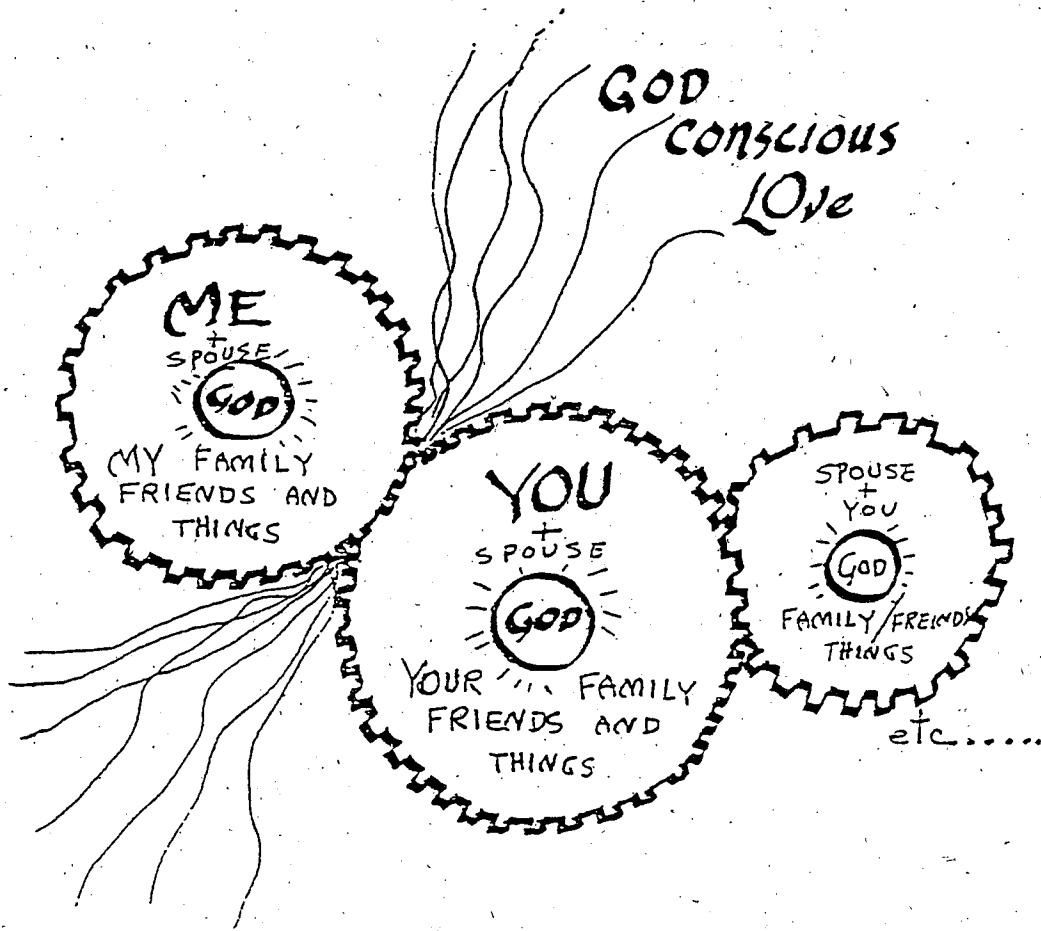 GOD
CONSCIOUS
LOVE
ME
+
SPOUSE
GOD
MY FAMILY
FRIENDS AND
THINGS
YOU
+
SPOUSE
GOD
YOUR FAMILY
FRIENDS AND
THINGS
SPOUSE
+
YOU
GOD
FAMILY/FREINDS
THINGS
etc.....